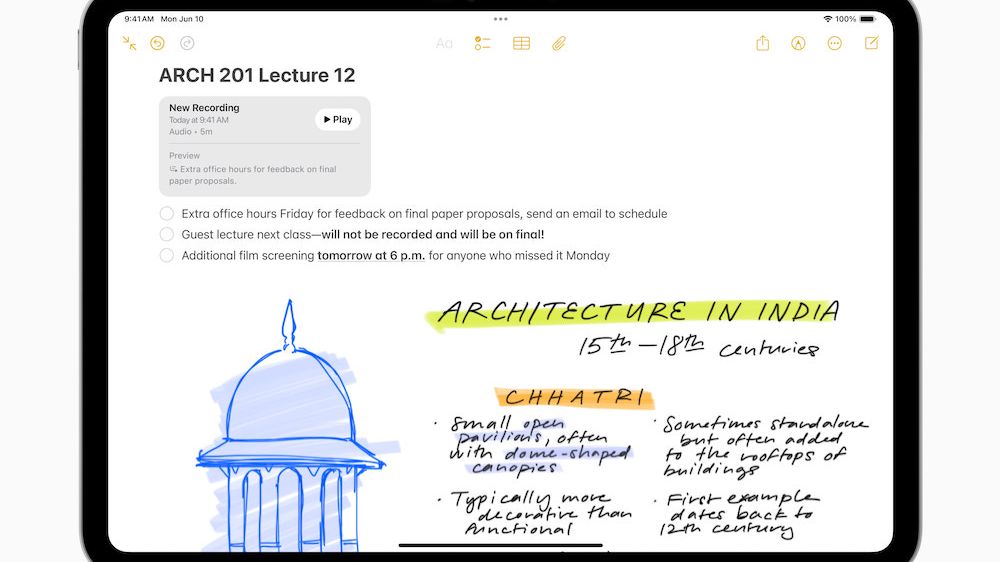 9:41 AM Mon Jun 10
100%
Aa
ARCH 201 Lecture 12
New Recording
Today at 9:41 AM
Audio • 5m
Play
Preview
Extra office hours for feedback on final
paper proposals.
Extra office hours Friday for feedback on final paper proposals, send an email to schedule
Guest lecture next class—will not be recorded and will be on final!
Additional film screening tomorrow at 6 p.m. for anyone who missed it Monday
ARCHITECTURE IN INDIA
15th – 18th centuries
CHHATRI
· Small open
pavilions, often
with dome-shaped
canopies
· Typically more
decorative than
functional
· Sometimes standalone
but often added
to the rooftops of
buildings
· First example
dates back to
12th century